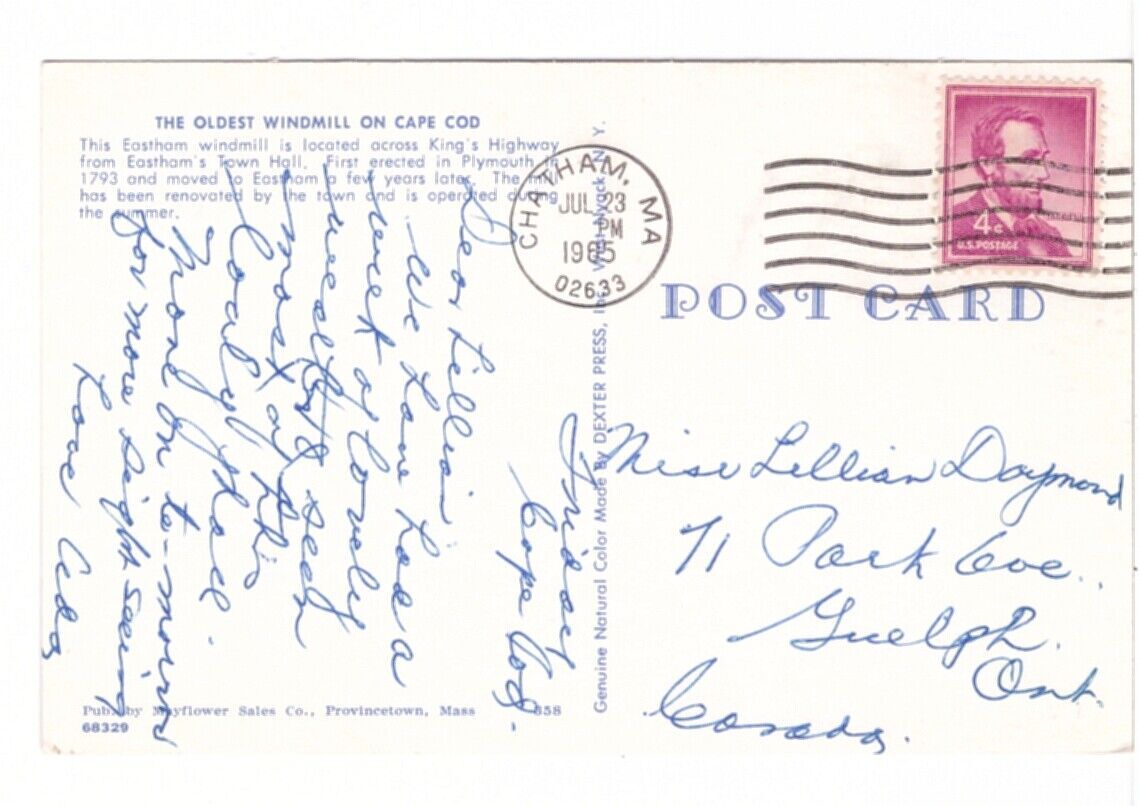 THE OLDEST WINDMILL ON CAPE COD
This Eastham windmill is located across King's Highway
from Eastham's Town Hall. First erected in Plymouth in
1793 and moved to Eastham a few years later. The mill
has been renovated by the town and is operated during
the summer.
CHATHAM, MA
JUL 23
PM
1965
02633
4¢
U.S. POSTAGE
POST CARD
Genuine Natural Color Made By DEXTER PRESS, Inc. West Nyack N. Y.
Friday
Cape Cod.
Dear Lillian
We have had a
week of lovely
weather & seen
most of the
Coast place.
Move on to-morrow
for more sight seeing
Love Ada
Miss Lillian Daymond
71 Park Ave.
Guelph.
Ont.
Canada.
Pub. by Mayflower Sales Co., Provincetown, Mass
858
68329